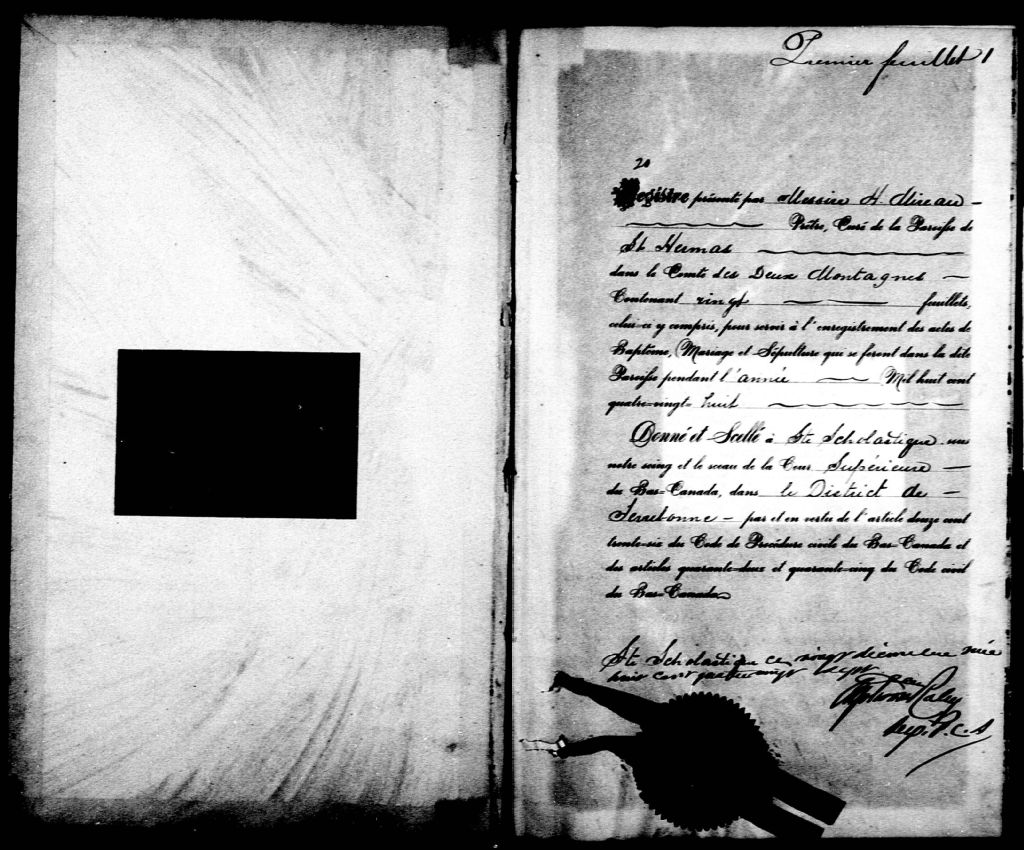 Premier feuillet 1
20
Registre présenté par Messire H. Mineau
Prêtre, Curé de la Paroisse de
St Hermas
dans le Comté des Deux Montagnes
Contenant vingt feuillets,
celui-ci y compris, pour servir à l'enregistrement des actes de
Baptême, Mariage et Sépulture qui se feront dans la dite
Paroisse pendant l'année Mil huit cent
quatre-vingt-huit
Donné et Scellé à Ste Scholastique sous
notre seing et le sceau de la Cour Supérieure
du Bas-Canada, dans le District de
Terrebonne - par et en vertu de l'article douze cent
trente-six du Code de Procédure civile du Bas-Canada et
des articles quarante-deux et quarante-cinq du Code civil
du Bas-Canada
Ste Scholastique ce vingt décembre mil
huit cent quatre vingt sept
Dep. P. C. S